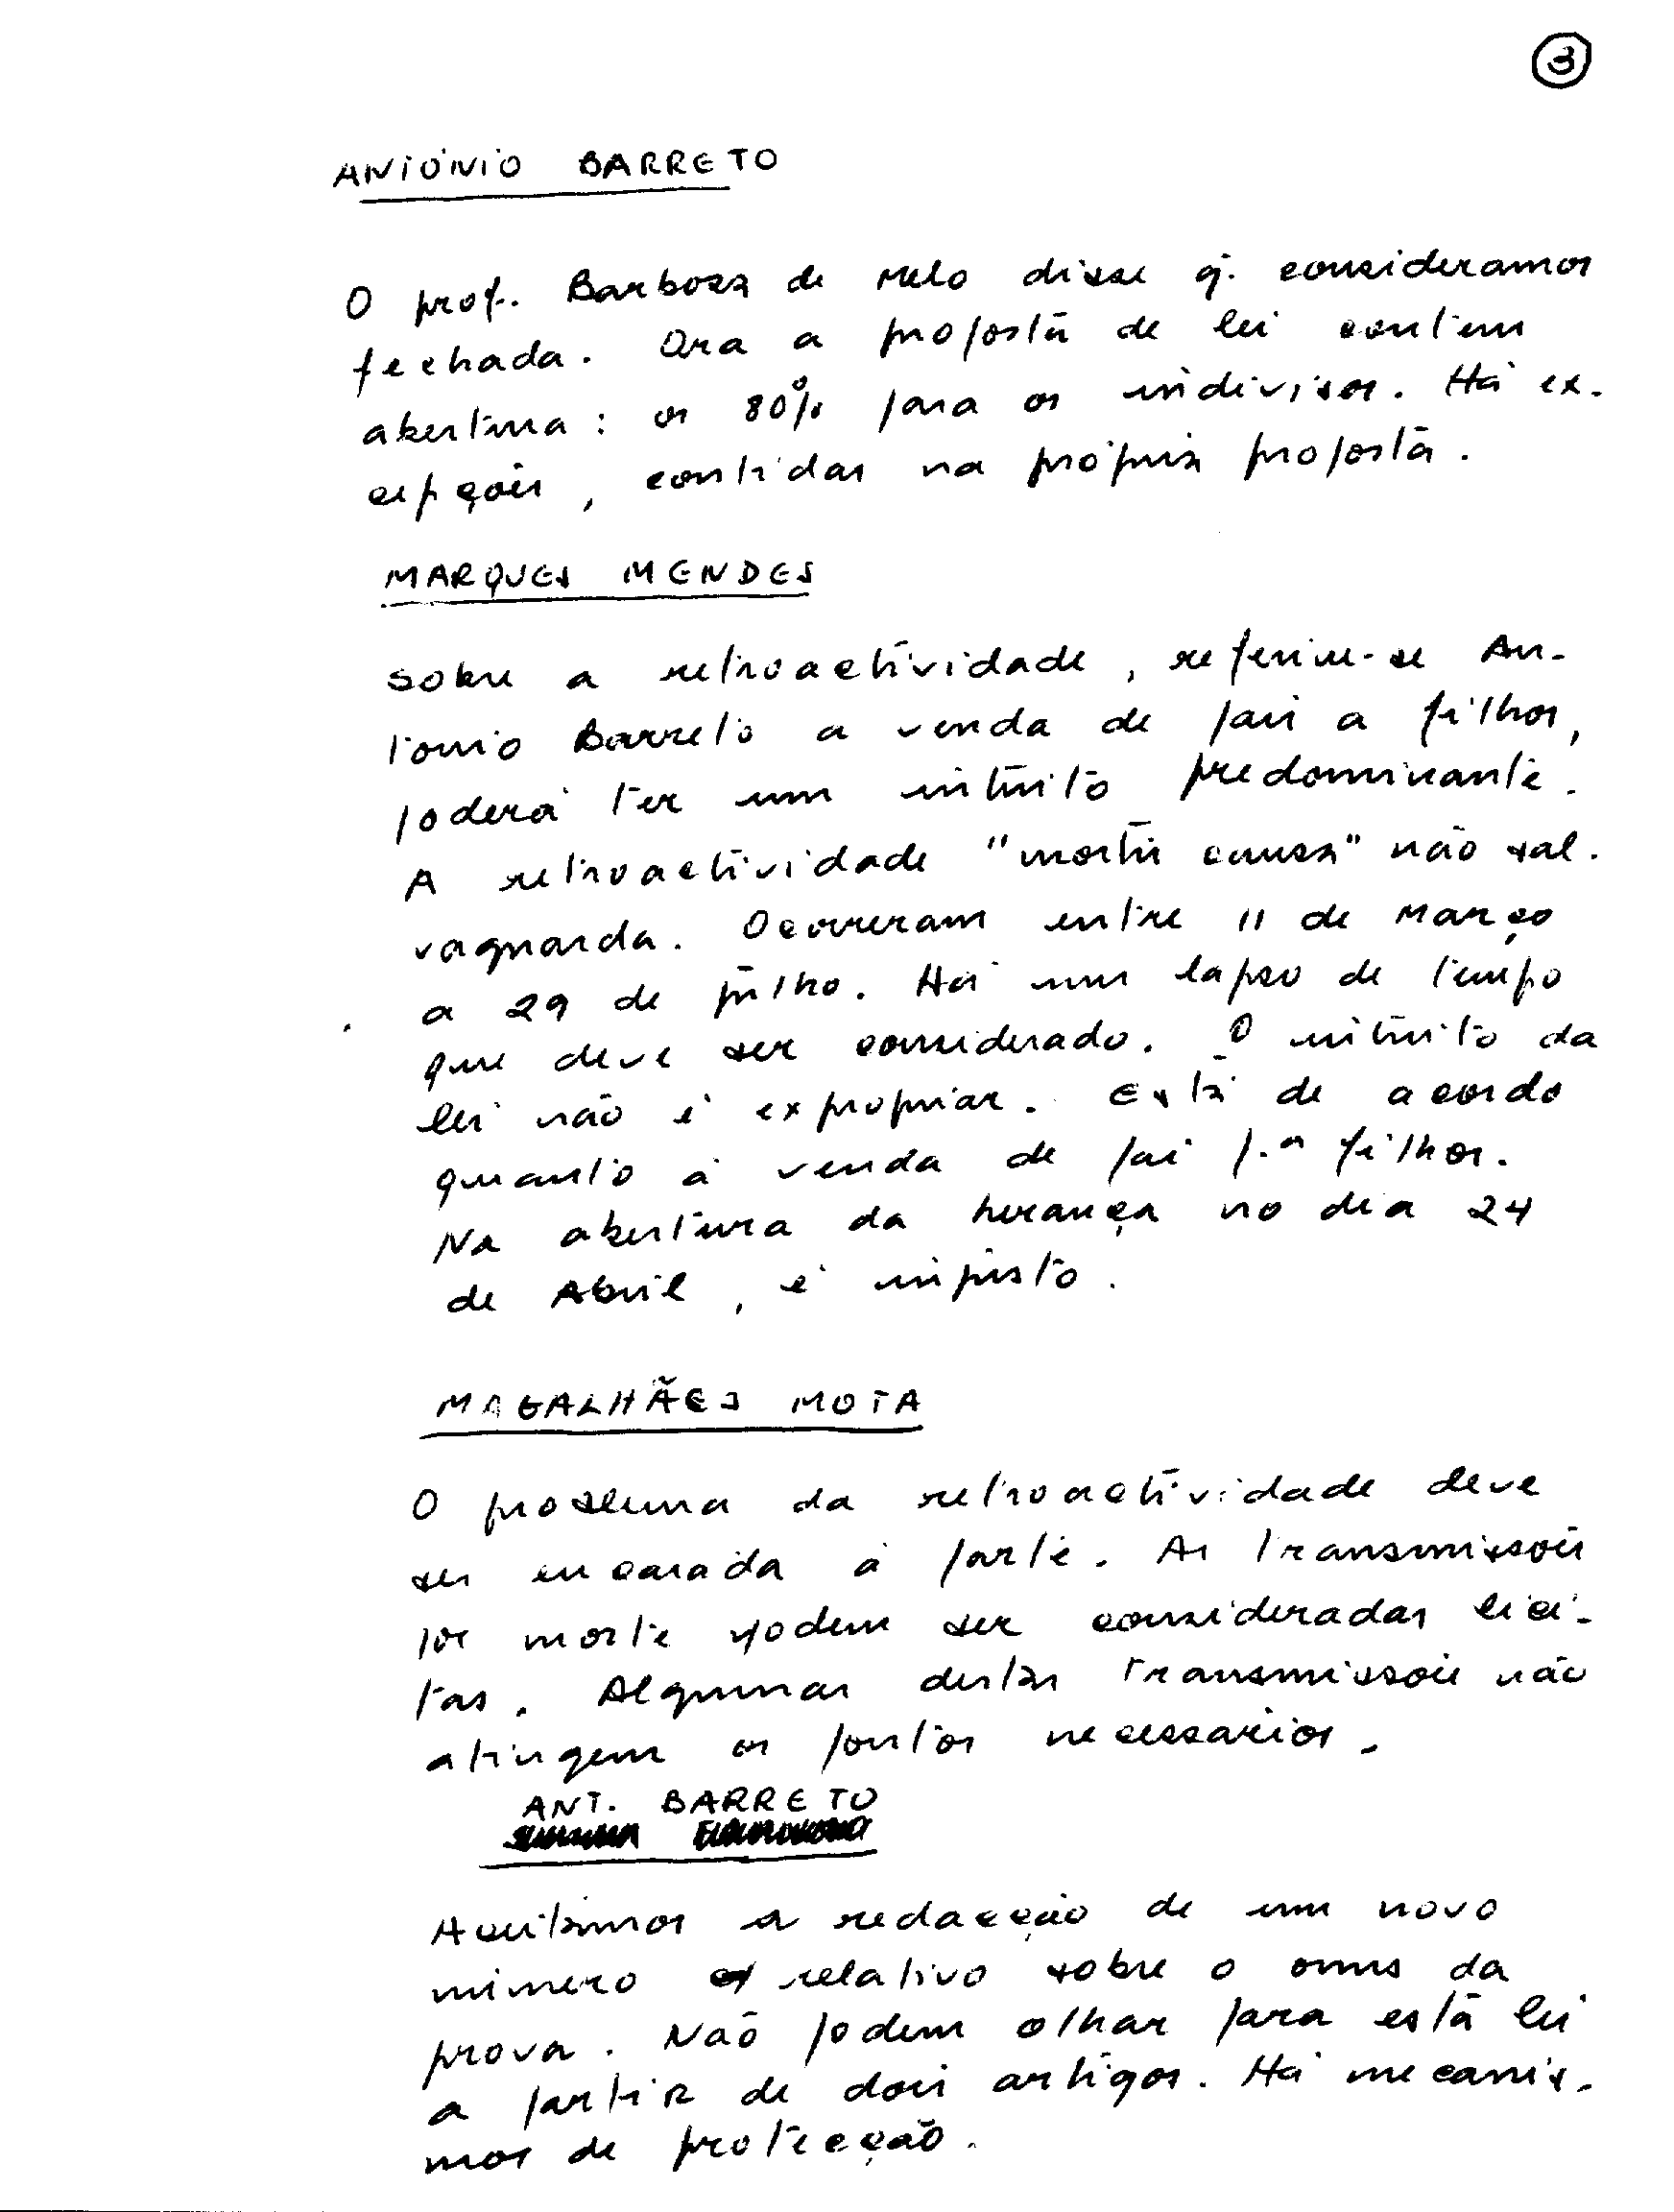 3
ANTÓNIO BARRETO
O prof. Barbosa de Melo disse q. consideramos
fechada. Ora a proposta de lei contem
abertura: os 80% para os indivisos. Há ex-
cepções, contidas na própria proposta.
MARQUES MENDES
Sobre a retroactividade, referiu-se An-
tonio Barreto a venda de pais a filhos,
poderá ter um intuito predominante.
A retroactividade "mortis causa" não sal-
vaguarda. Ocorreram entre 11 de Março
a 29 de julho. Há um lapso de tempo
que deve ser considerado. O intuito da
lei não é expropriar. Está de acordo
quanto à venda de pai p.a filhos.
Na abertura da herança no dia 24
de Abril, é injusto.
MAGALHÃES MOTA
O problema da retroactividade deve
ser encarada à parte. As transmissões
por morte podem ser consideradas lici-
tas. Algumas destas transmissões não
atingem os pontos necessarios.
ANT. BARRETO
Aceitamos a redacção de um novo
número relativo sobre o onus da
prova. Não podem olhar para esta lei
a partir de dois artigos. Há mecanis-
mos de protecção.